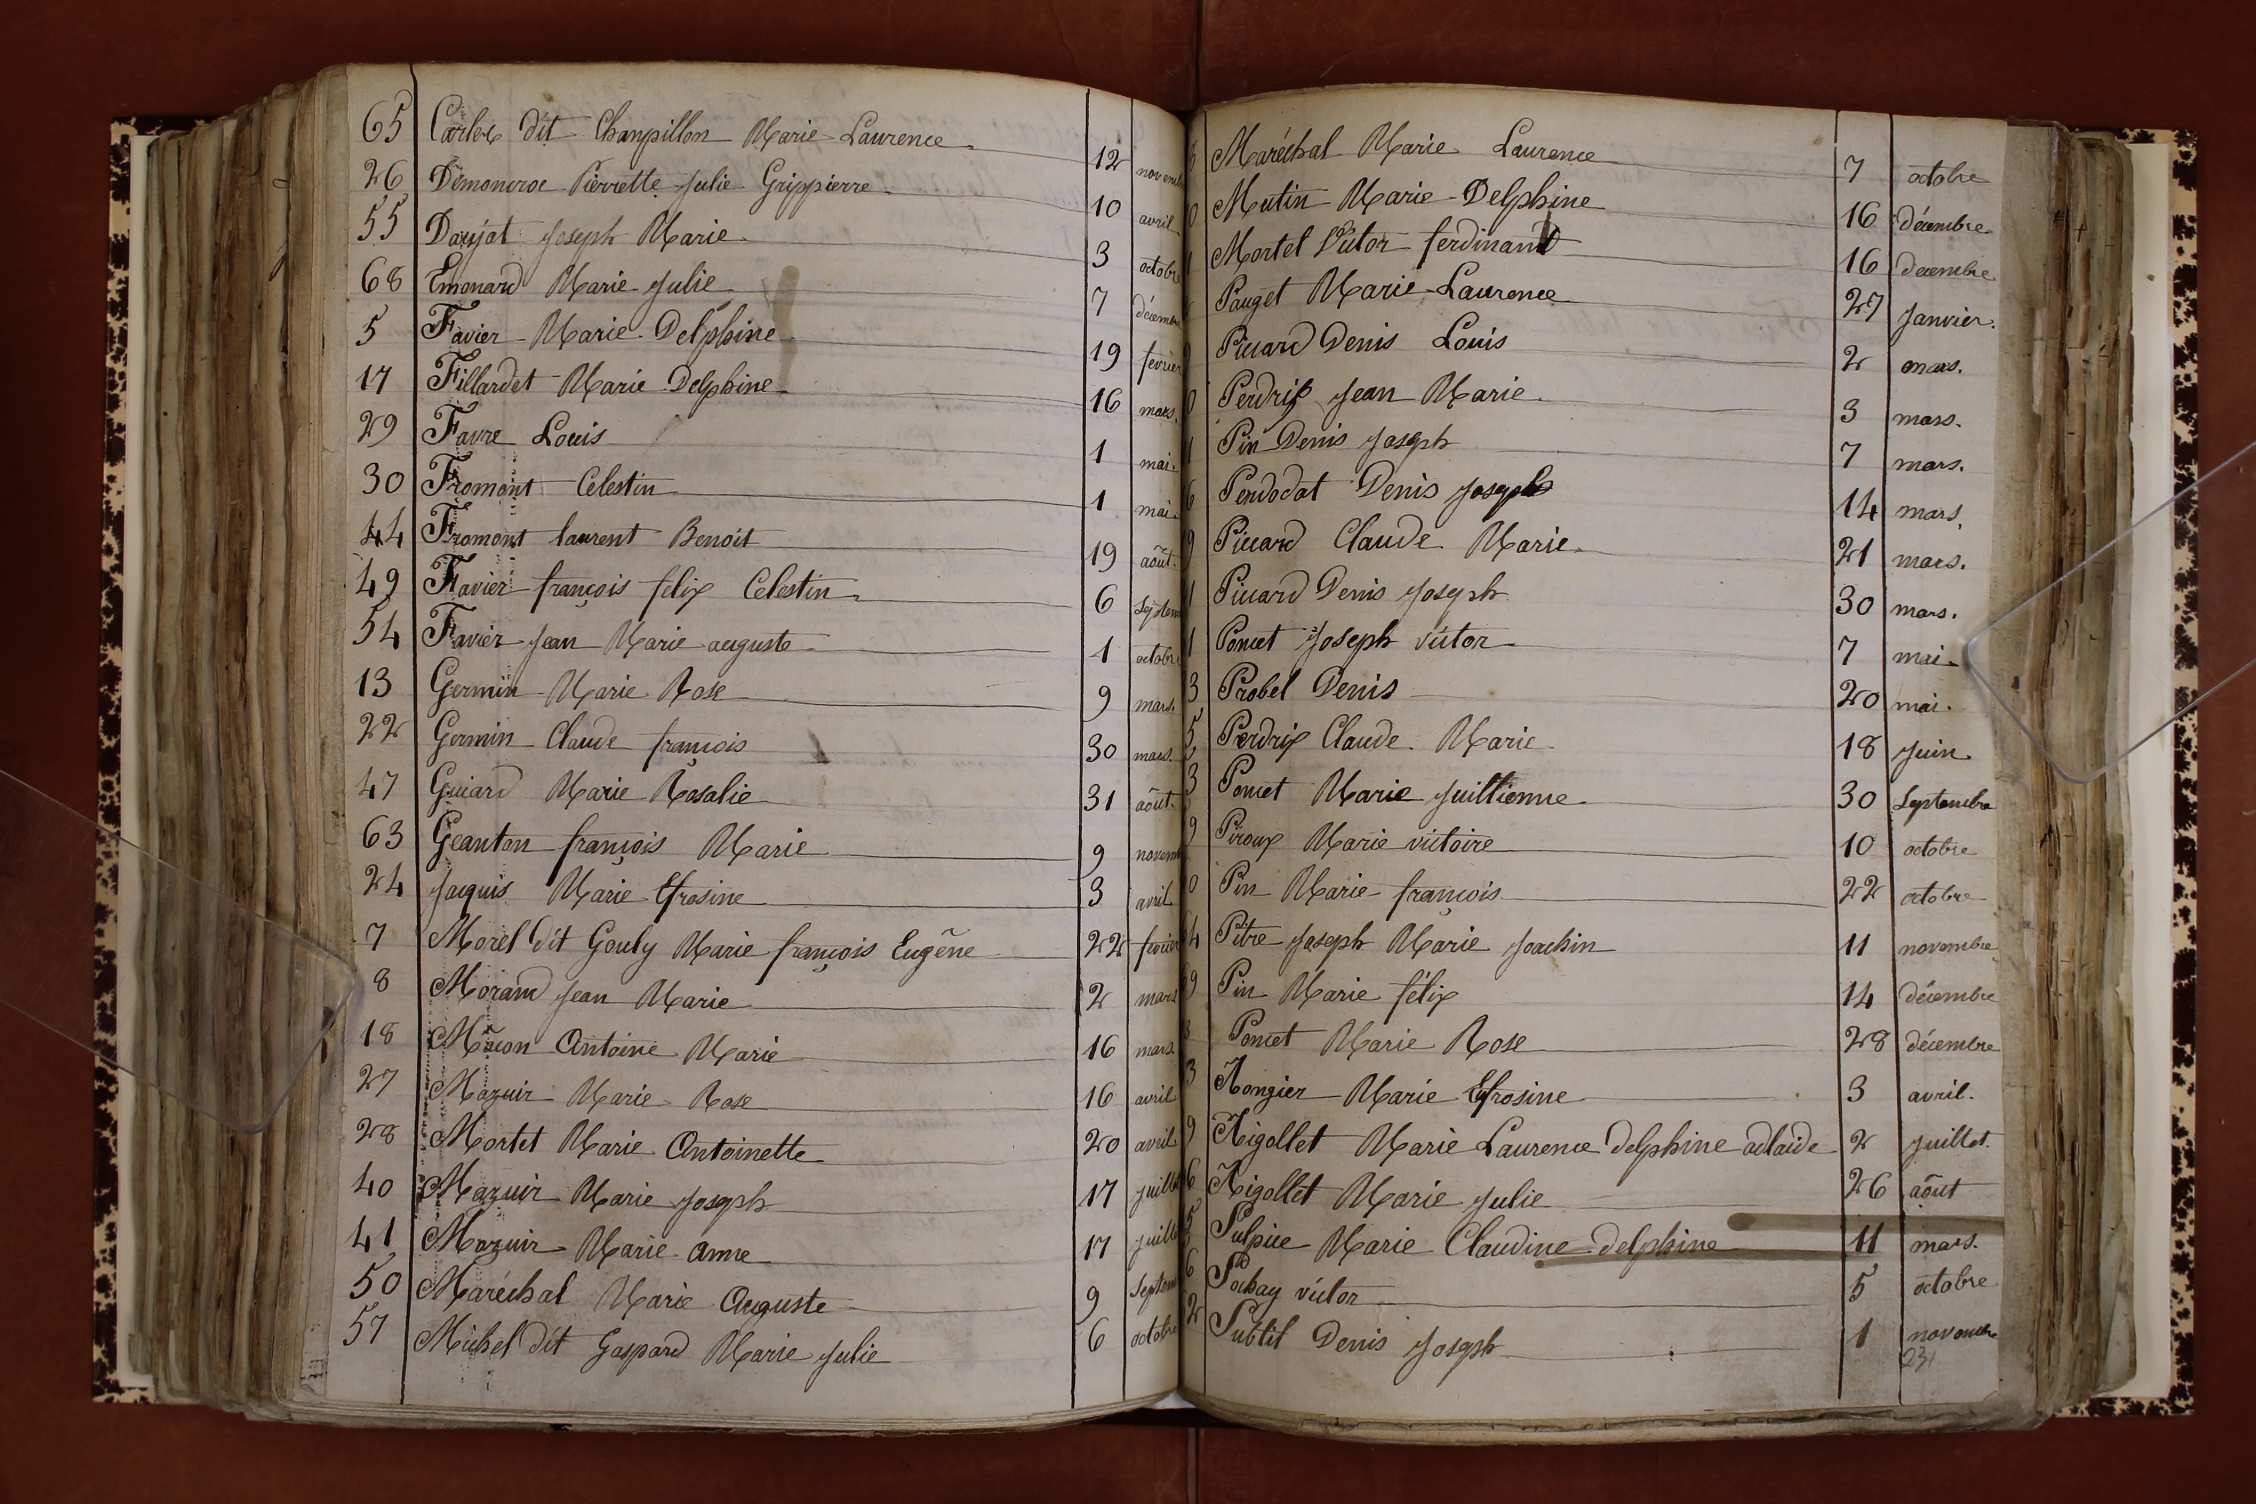 65 Carlex dit Chanpillon Marie Laurence 12 novemb
26 Demoncroc Pierrette Julie Grippierre 10 avril
55 Daujat Joseph Marie 3 octobre
68 Emonard Marie Julie 7 décemb
5 Favier Marie Delphine 19 fevrier
17 Fillardet Marie Delphine 16 mars.
29 Favre Louis 1 mai.
30 Fromont Celestin 1 mai.
44 Fromont laurent Benoit 19 août.
49 Favier françois felix Celestin 6 Septem
54 Favier Jean Marie auguste 1 octobre
13 Germin Marie Rose 9 mars.
22 Germin Claude françois 30 mars.
47 Guiard Marie Rosalie 31 août.
63 Geanton françois Marie 9 novemb
24 Jaquis Marie Efrosine 3 avril
7 Morel dit Gouly Marie françois Eugêne 22 fevrier
8 Morand Jean Marie 2 mars
18 Mâcon Antoine Marie 16 mars
27 Mazuir Marie Rose 16 avril
28 Mortet Marie Antoinette 20 avril
40 Mazuir Marie Joseph 17 juillet
41 Mazuir Marie anne 17 juillet
50 Maréchal Marie Auguste 9 Septem
57 Michel dit Gaspard Marie Julie 6 octobre
Maréchal Marie Laurence 7 octobre
0 Mutin Marie Delphine 16 décembre
1 Mortel Victor ferdinand 16 decembre
Pauget Marie Laurence 27 Janvier.
Picard Denis Louis 2 mars.
0 Perdrix Jean Marie 3 mars.
1 Pin Denis Joseph 7 mars.
6 Pendodat Denis Joseph 14 mars.
9 Picard Claude Marie 21 mars.
1 Picard Denis Joseph 30 mars.
1 Poncet Joseph victor 7 mai
3 Probel Denis 20 mai.
5 Perdrix Claude Marie 18 Juin
3 Poncet Marie Juittienne 30 Septembre
9 Piroux Marie victoire 10 octobre
0 Pin Marie françois 22 octobre
4 Pitre Joseph Marie Joachin 11 novembre
9 Pin Marie félix 14 décembre
Poncet Marie Rose 28 décembre
3 Rongier Marie Efrosine 3 avril.
9 Rigollet Marie Laurence delphine adlaide 2 Juillet.
6 Rigollet Marie Julie 26 août
5 Sulpice Marie Claudine delphine 11 mars.
6 Sochay victor 5 octobre
2 Subtil Denis Joseph 1 novembre
231